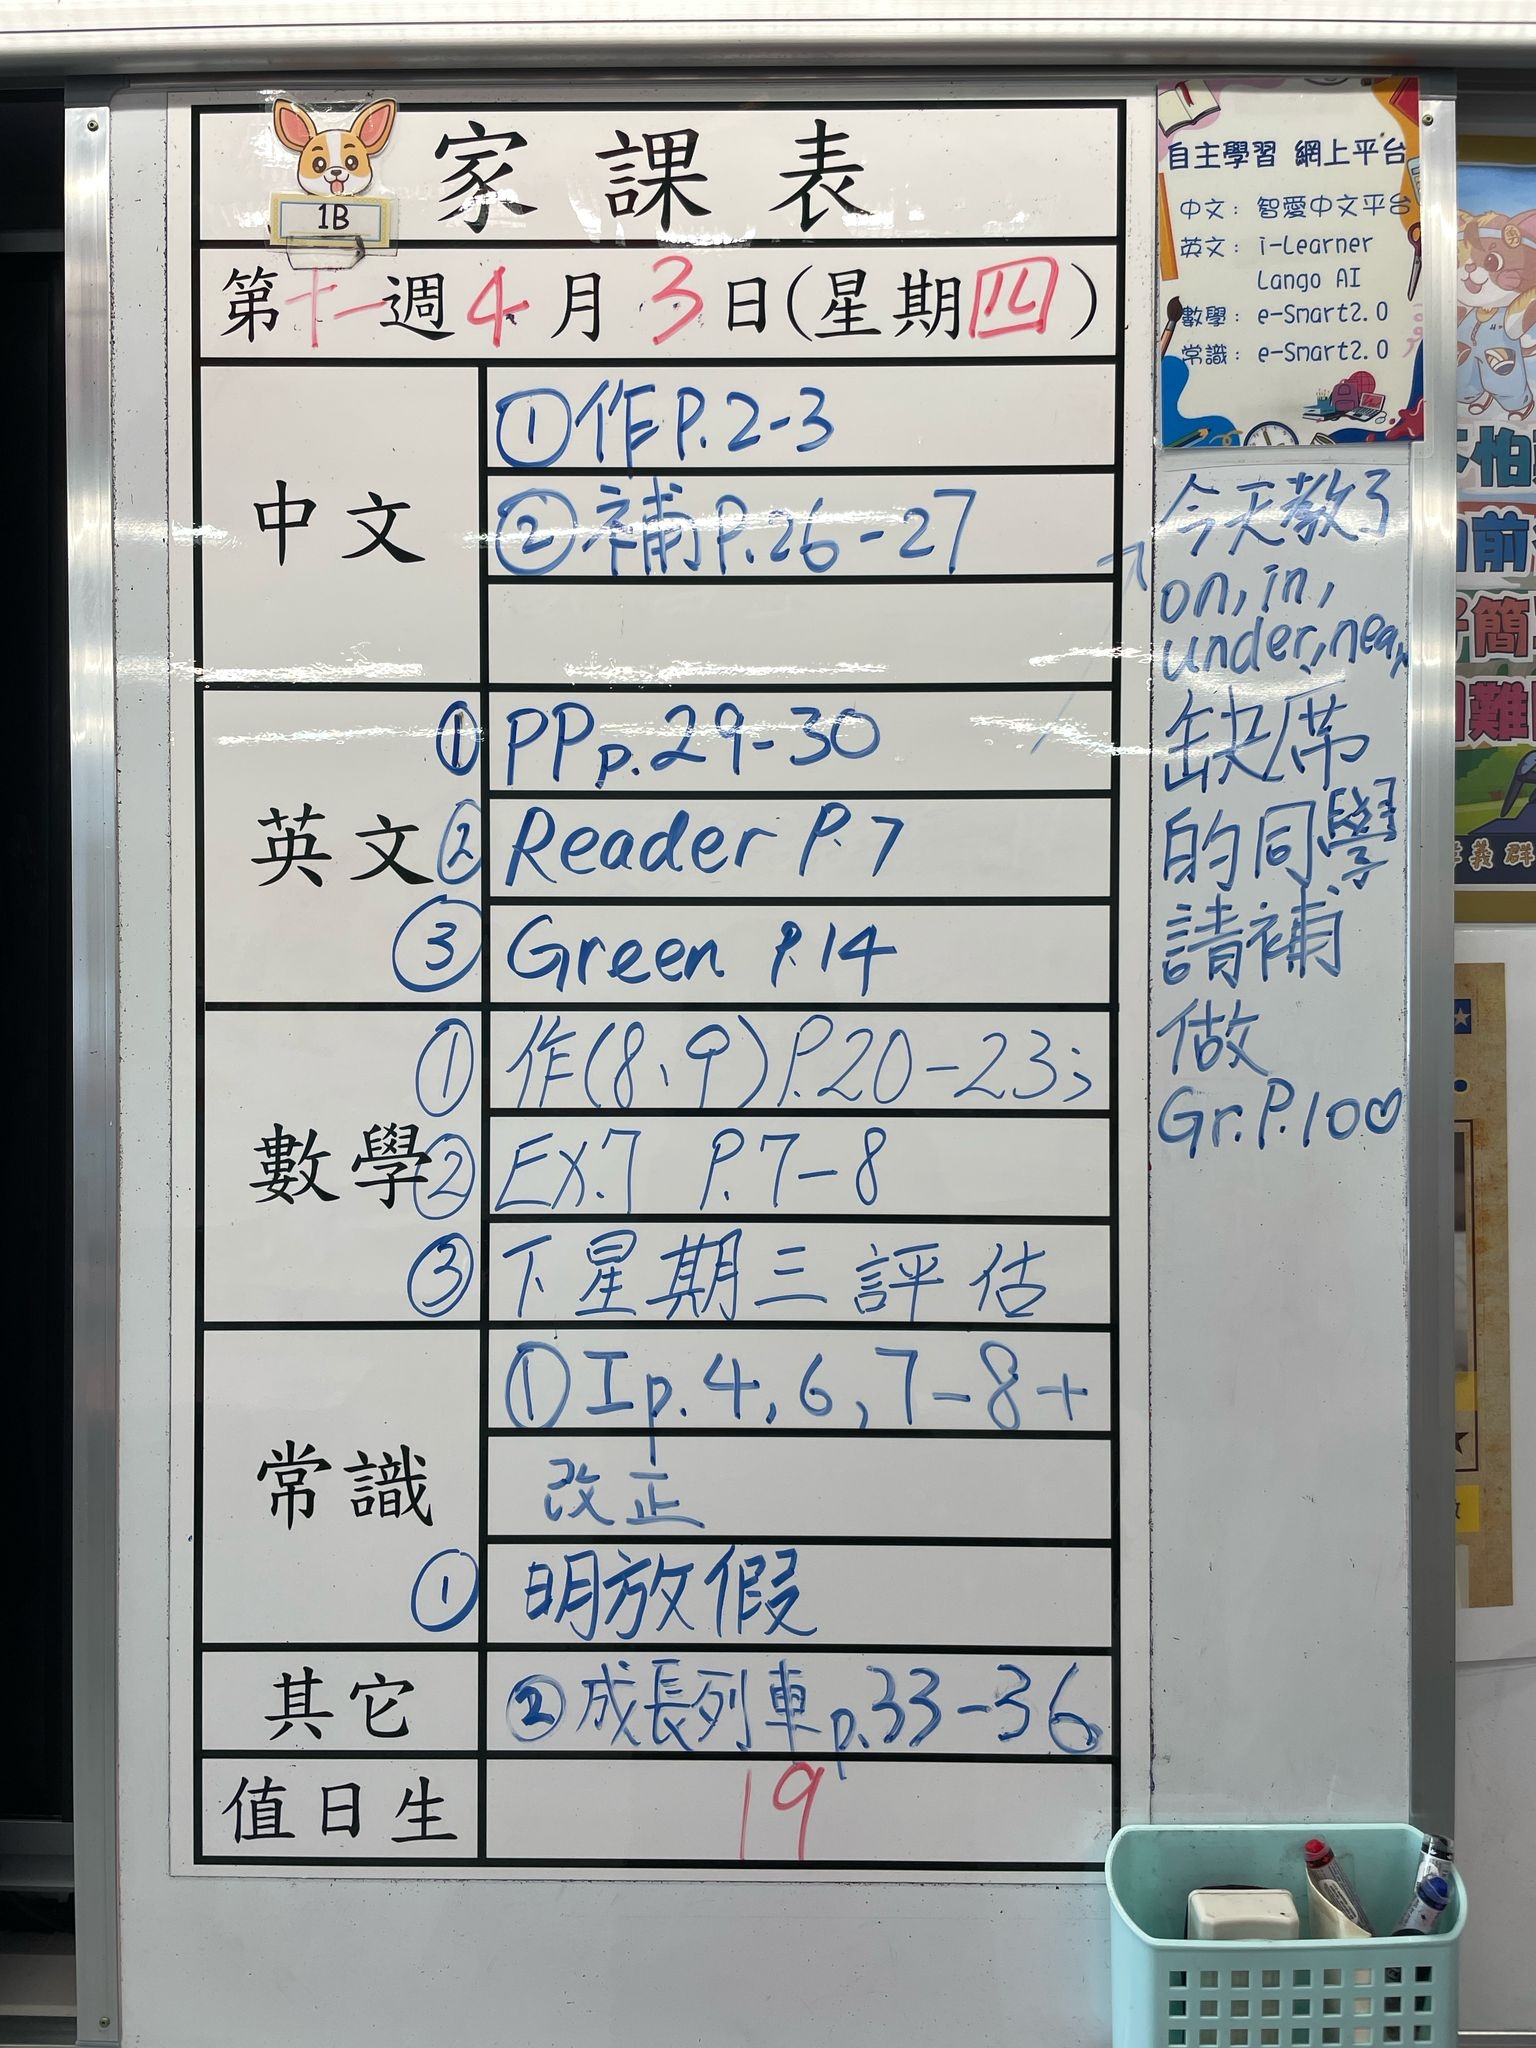 家課表
1B
第十一週4月3日(星期四)
中文
①作P.2-3
②補P.26-27
英文
①PPp.29-30
②Reader P.7
③Green P.14
數學
①作(8、9)P.20-23;
②EX.7 P.7-8
③下星期三評估
常識
①Ip.4,6,7-8+
改正
①明放假
其它
②成長列車p.33-36
值日生
19
自主學習 網上平台
中文: 智愛中文平台
英文: i-Learner
Lango AI
數學: e-Smart2.0
常識: e-Smart2.0
今天教了
on, in,
under, near
缺席
的同學
請補
做
Gr.P.10♡